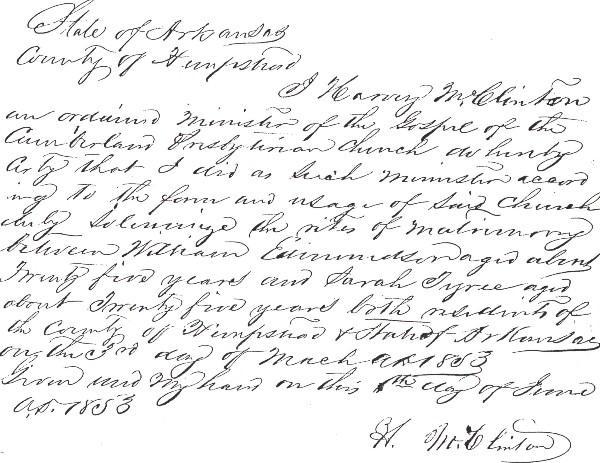 State of Arkansas
County of Hempstead
I Harvey McClinton
an ordained minister of the Gospel of the
Cumberland Presbyterian Church do hereby
Certy that I did as Such minister accord
ing to the form and usage of Said Church
duly Solemnize the rites of matrimony
between William Edmundson aged about
Twenty five years and Sarah Tyree aged
about Twenty five years both residents of
the County of Hempstead & State of Arkansas
on the 3rd day of Mach AD 1853
Given und my hand on this day of June
A.D. 1853
H. McClinton